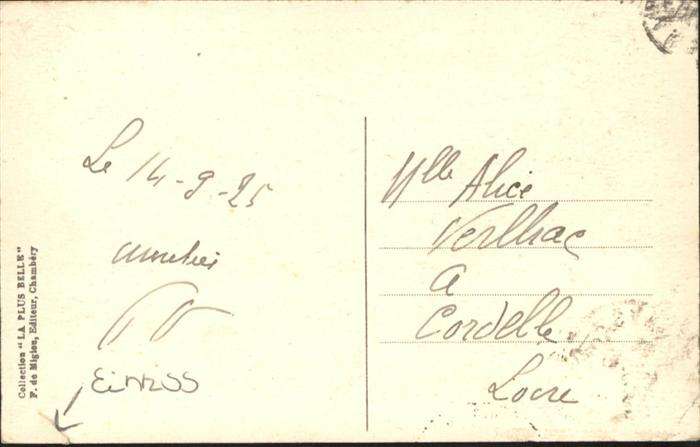 Le 14-9-25
Mlle Alice
Verlhac
a
Cordelle
Loire
Collection "LA PLUS BELLE"
F. de Miglos, Editeur, Chambéry